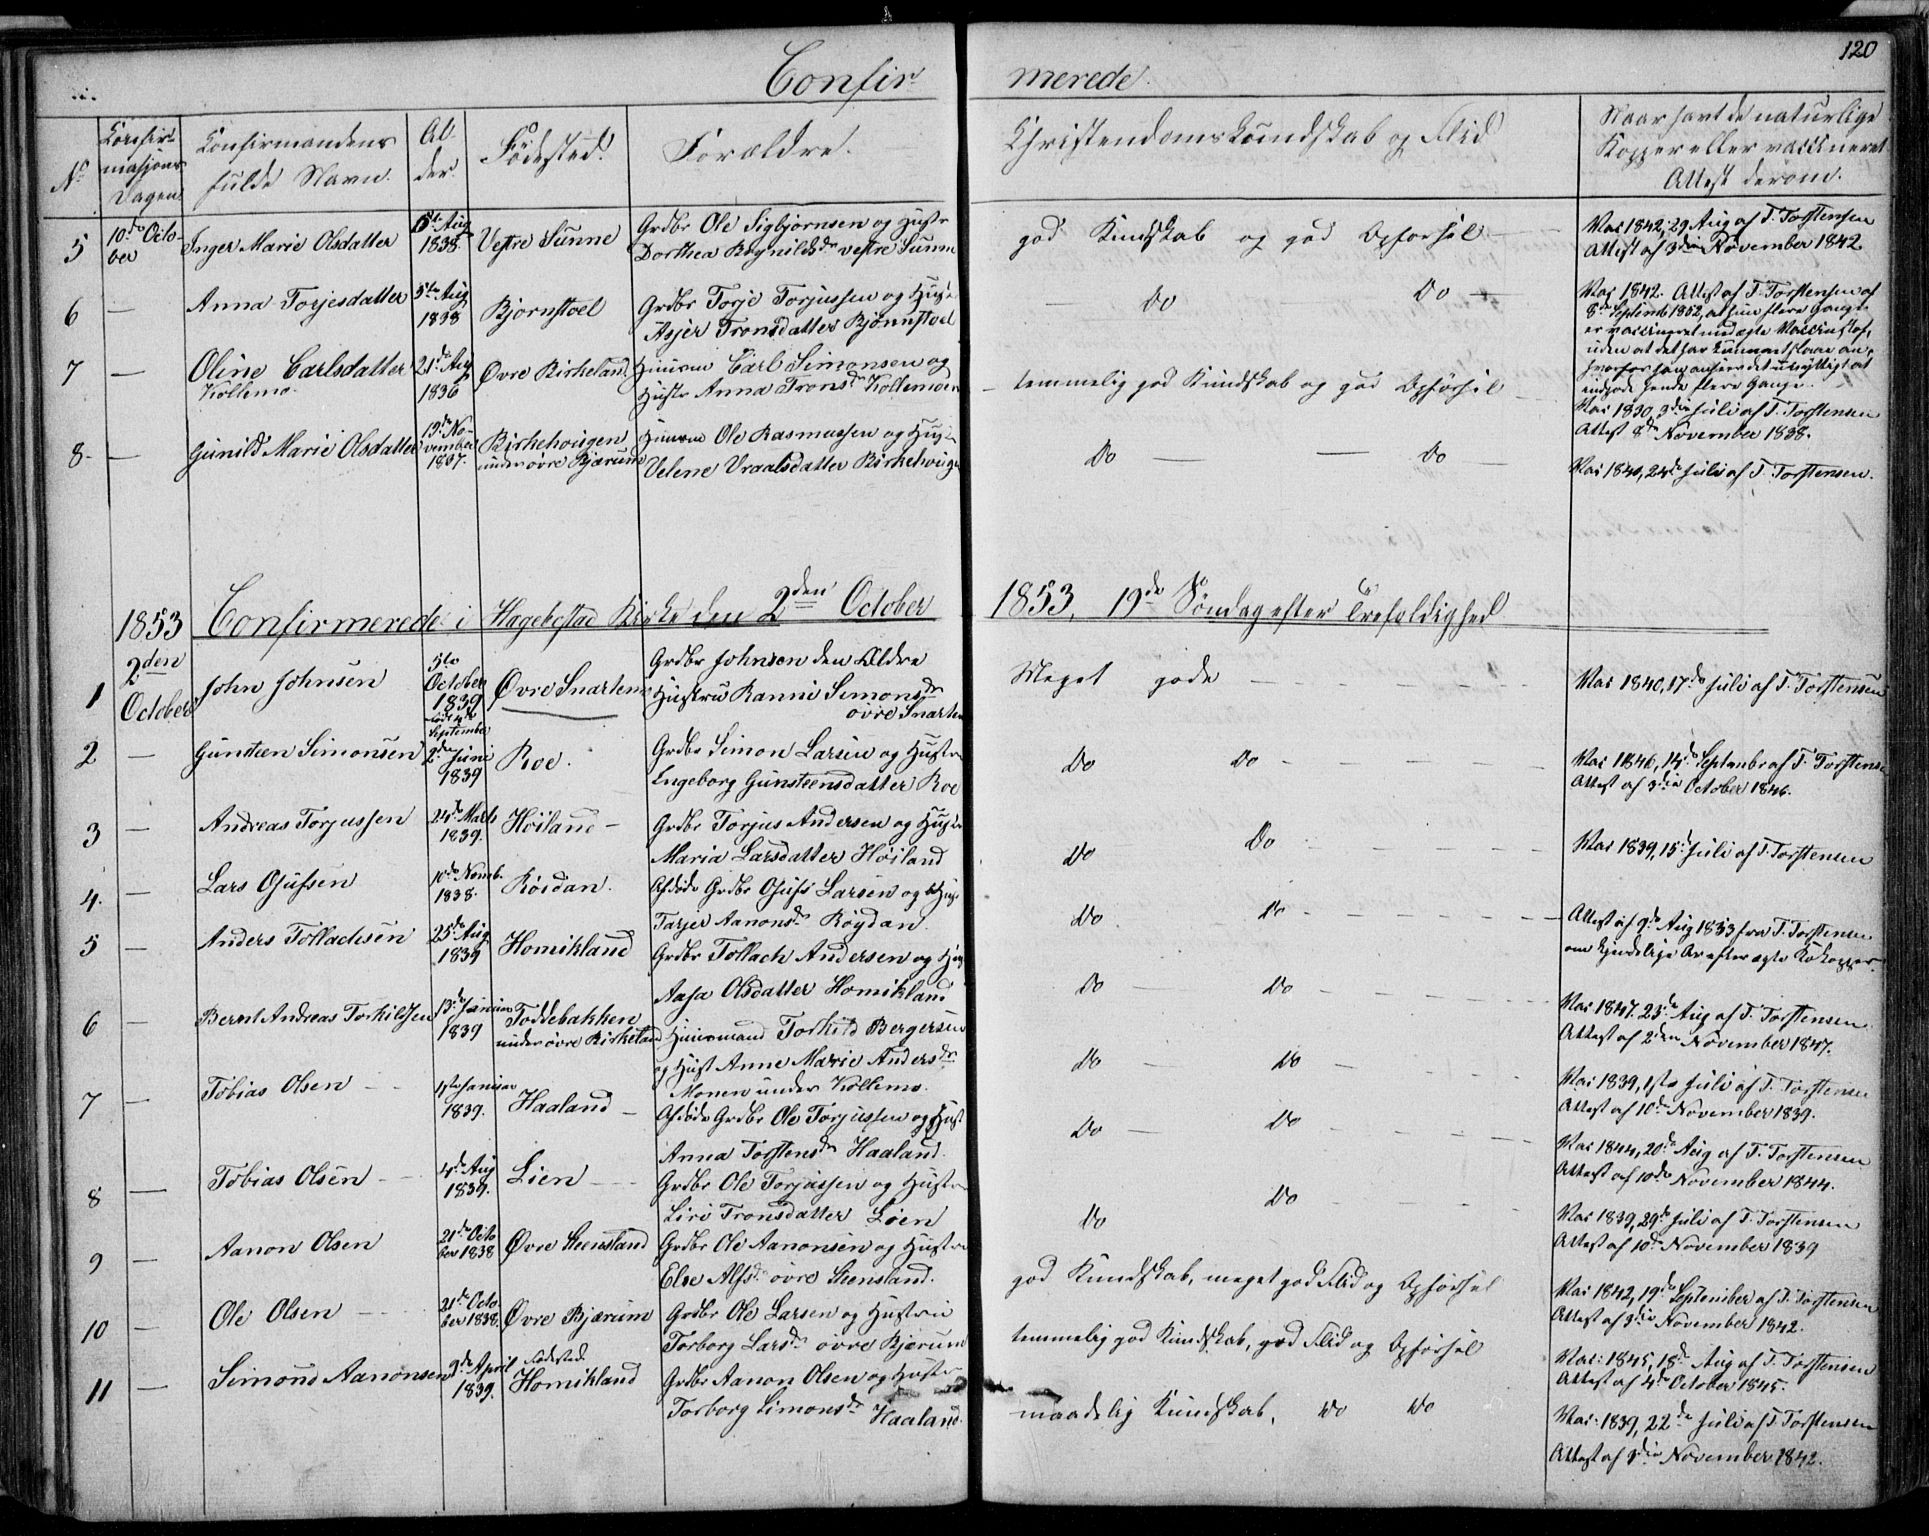 120
Confir- merede.
No
Konfir-
masjons
Dagen
Konfirmandens
fulde Navn.
Al-
der.
Fødested.
Forældre.
Christendomskundskab og Flid
Naar havt de naturlige
Kopper eller vaccineret
Attest derom.
5 10de Octo-
ber
Inger Marie Olsdatter
Aug
1838.
Vestre Sunne
Grdbr Ole Sigbjørnsen og Hustr
Dorthea Regnildsdr vestre Sunne
god Kundskab og god Opførsel
Vac 1842, 29 Aug af T. Torstensen
Attest af 3die November 1842.
6 —
Anna Torjesdatter
5te Aug
1838
Bjørnstoel
Grdbr Torje Torjussen og Hustr
Asjer Tronsdatter Bjønnstoel
— Do Do —
Vac 1842. Attest af T. Torstensen af
8de Septemb 1852, at hun flere Gange
er vaccineret med ægte Vaccinestof,
uden at det har kunnet slaae an,
hvorfor han anseer det unyttigt at
indpode hende flere Gange.
7 —
Oline Carlsdatter
Kollemo.
21de Aug
1836
Øvre Birkeland
Huusm Carl Simonsen og
Hustr Anna Tronsdr Kollemoen
temmelig god Kundskab og god Opførsel
Vac 1830, 3die Juli af T. Torstensen
Attest 8de November 1838.
8. —
Gunild Marie Olsdatter
19de No-
vember
1837.
Birkehougen
under øvre Bjærum
Huusm Ole Rasmussen og Hustr
Velene Vraalsdatter Birkehougen
Do — — Do —
Vac 1840, 24de Juli af T. Torstensen.
1853 Confirmerede i Hagebostad Kirke den 2den October 1853, 19de Søndag efter Trefoldighed
1 2den
October
John Johnsen
5te
October
1839
September
Øvre Snartemo
Grdbr Johnson den Ældre
Hustru Ranni Simonsdr
øvre Snartem
Meget gode
Vac 1840, 17de Juli af T. Torstensen
2 —
Gunsteen Simonsen
2den Juni
1839
Roe.
Grdbr Simon Larsen og Hustr
Engeborg Gunsteensdatter Roe
Do Do
Vac 1846, 14de Septembr af T. Torstensen
Attest af 3die October 1846.
3 —
Andreas Torjussen
24de Marts
1839.
Høiland —
Grdbr Torjus Andersen og Hustr
Maria Larsdatter Høiland
Do Do
Vac 1839, 15de Juli af T. Torstensen
4. —
Lars Osufsen
10de Novemb.
1838.
Røidan.
Afdøde Grdbr Osufs Larsen og Hust
Tarjer Aanonsdr Røydan.
Do Do
Attest af 9de Aug 1853 fra T. Torstensen
om kjendelige Ar efter ægte Kokopper.
5 —
Anders Tollachsen
25de Aug
1839
Homikland
Grdbr Tollach Andersen og Hust
Aasa Olsdatter Homikland
Do Do
Vac 1847. 23de Aug af T. Torstensen
Attest af 2den November 1847.
6 —
Bernt Andreas Torkildsen
13de Januar
1839
Toddebakken
under øvre Birkeland
Huusmand Torkild Bergersen
og Hust Anne Marie Andersdr
Monen under Kollemo.
Do Do
Vac 1839, 1ste Juli af T. Torstensen
Attest af 10de November 1839.
7 —
Tobias Olsen
1ste Januar
1839.
Haaland —
Afdøde Grdbr Ole Torjussen og Hust
Anna Torstensdr Haaland.
Do Do
Vac 1844, 20de Aug af T. Torstensen
Attest af 10de November 1844.
8 —
Tobias Olsen
4de Aug
1839.
Lien
Grdbr Ole Torjussen og Hustr
Siri Tronsdatter Lien
Do Do
Vac 1839, 29de Juli af T. Torstensen
Attest af 10de November 1839
9 —
Aanon Olsen
21de Octo
ber 1838
Øvre Steensland
Grdbr Ole Aanonsen og Hustru
Else Alfsdr øvre Steensland.
god Kundskab, meget god Flid og Opførsel
Vac 1842, 19de September af T. Torstensen
Attest af 3die November 1842.
10 —
Ole Olsen
21de Octo-
ber 1838.
Øvre Bjærum
Grdbr Ole Larsen og Hustru
Torborg Larsdr øvre Bjærum
temmelig god Kundskab, god Flid og Opførsel
Vac: 1845, 18de Aug af T. Torstensen
Attest af 4de October 1845.
11 —
Simond Aanonsen
9de April
1839.
Fødested
Homikland
Grdbr Aanon Olsen og Hustr
Torborg Simonsdr Haaland.
maadelig Kundskab, Do Do
Vac: 1839, 22de Juli af T. Torstensen
Attest af 3die November 1842.